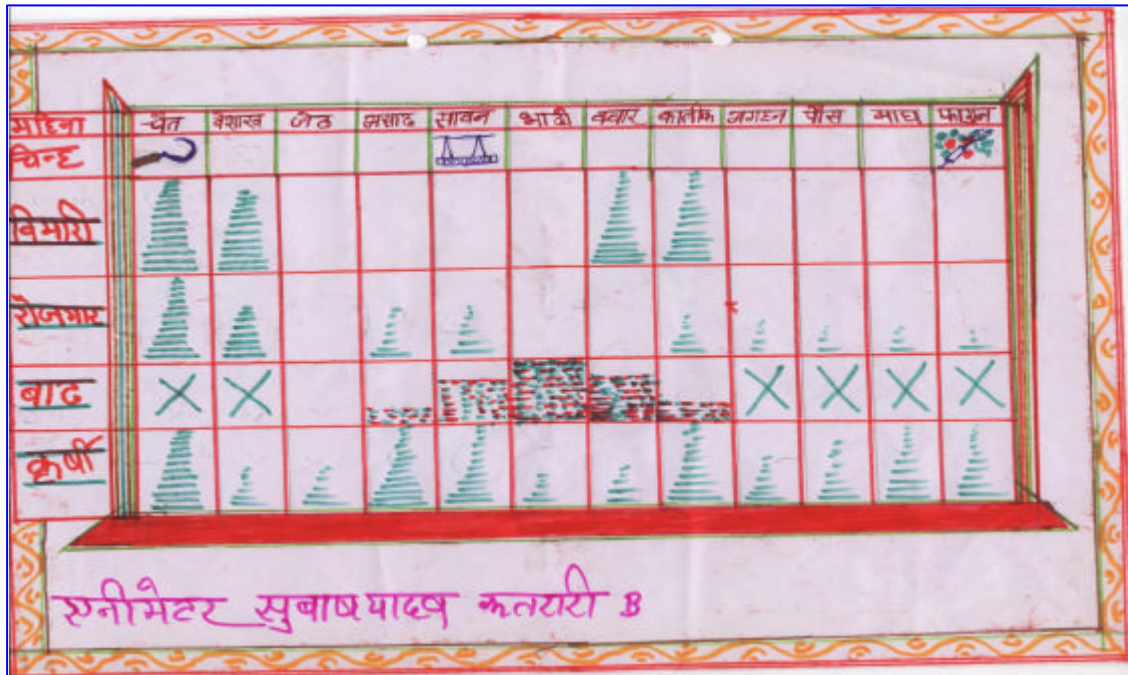 महिना चैत वैशाख जेठ असाढ सावन भादो क्वार कार्तीक अगहन पौस माघ फागुन
चिन्ह
विमारी
रोजगार
बाढ
कृर्षी
एनीमेटर सुबाष यादव कतरारी B